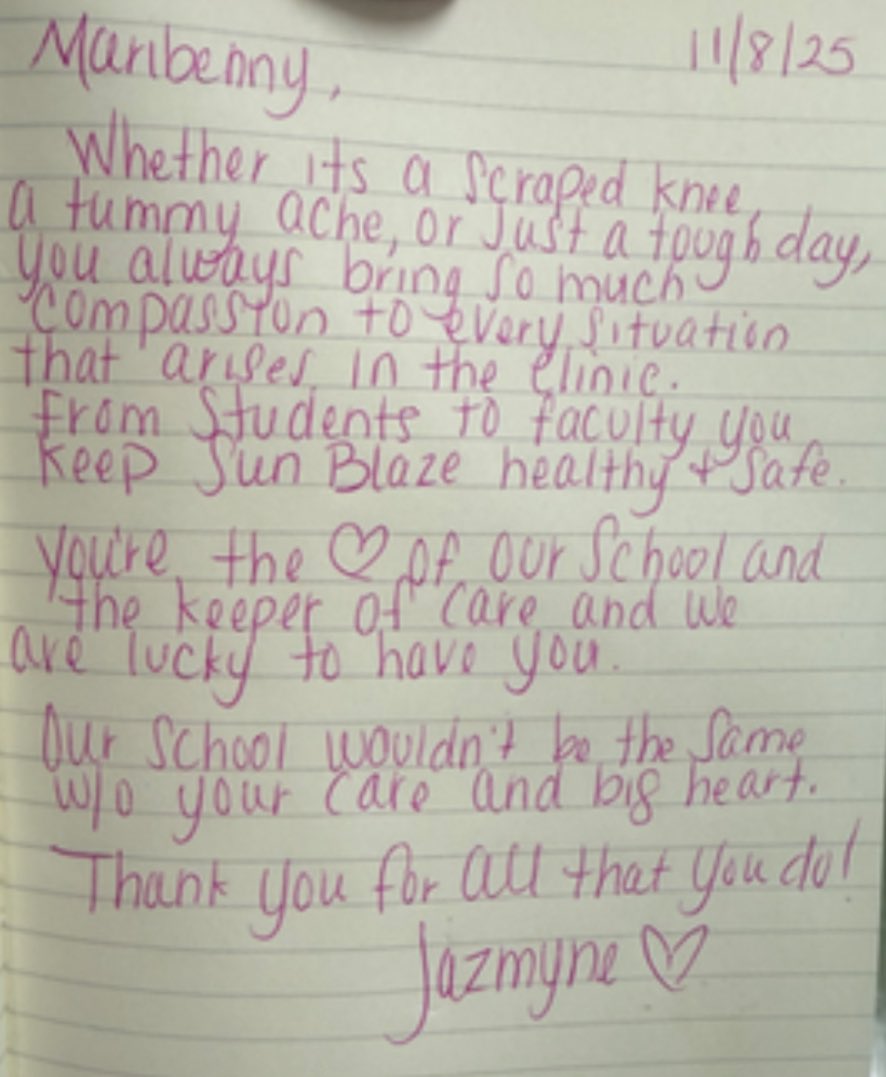 Maribenny, 11/8/25
Whether its a scraped knee,
a tummy ache, or just a tough day,
you always bring so much
compassion to every situation
that arises in the clinic.
From Students to faculty you
keep Sun Blaze healthy + safe.
You're the ♡ of our School and
the keeper of care and we
are lucky to have you.
Our School wouldn't be the same
w/o your care and big heart.
Thank you for all that you do!
Jazmyne ♡